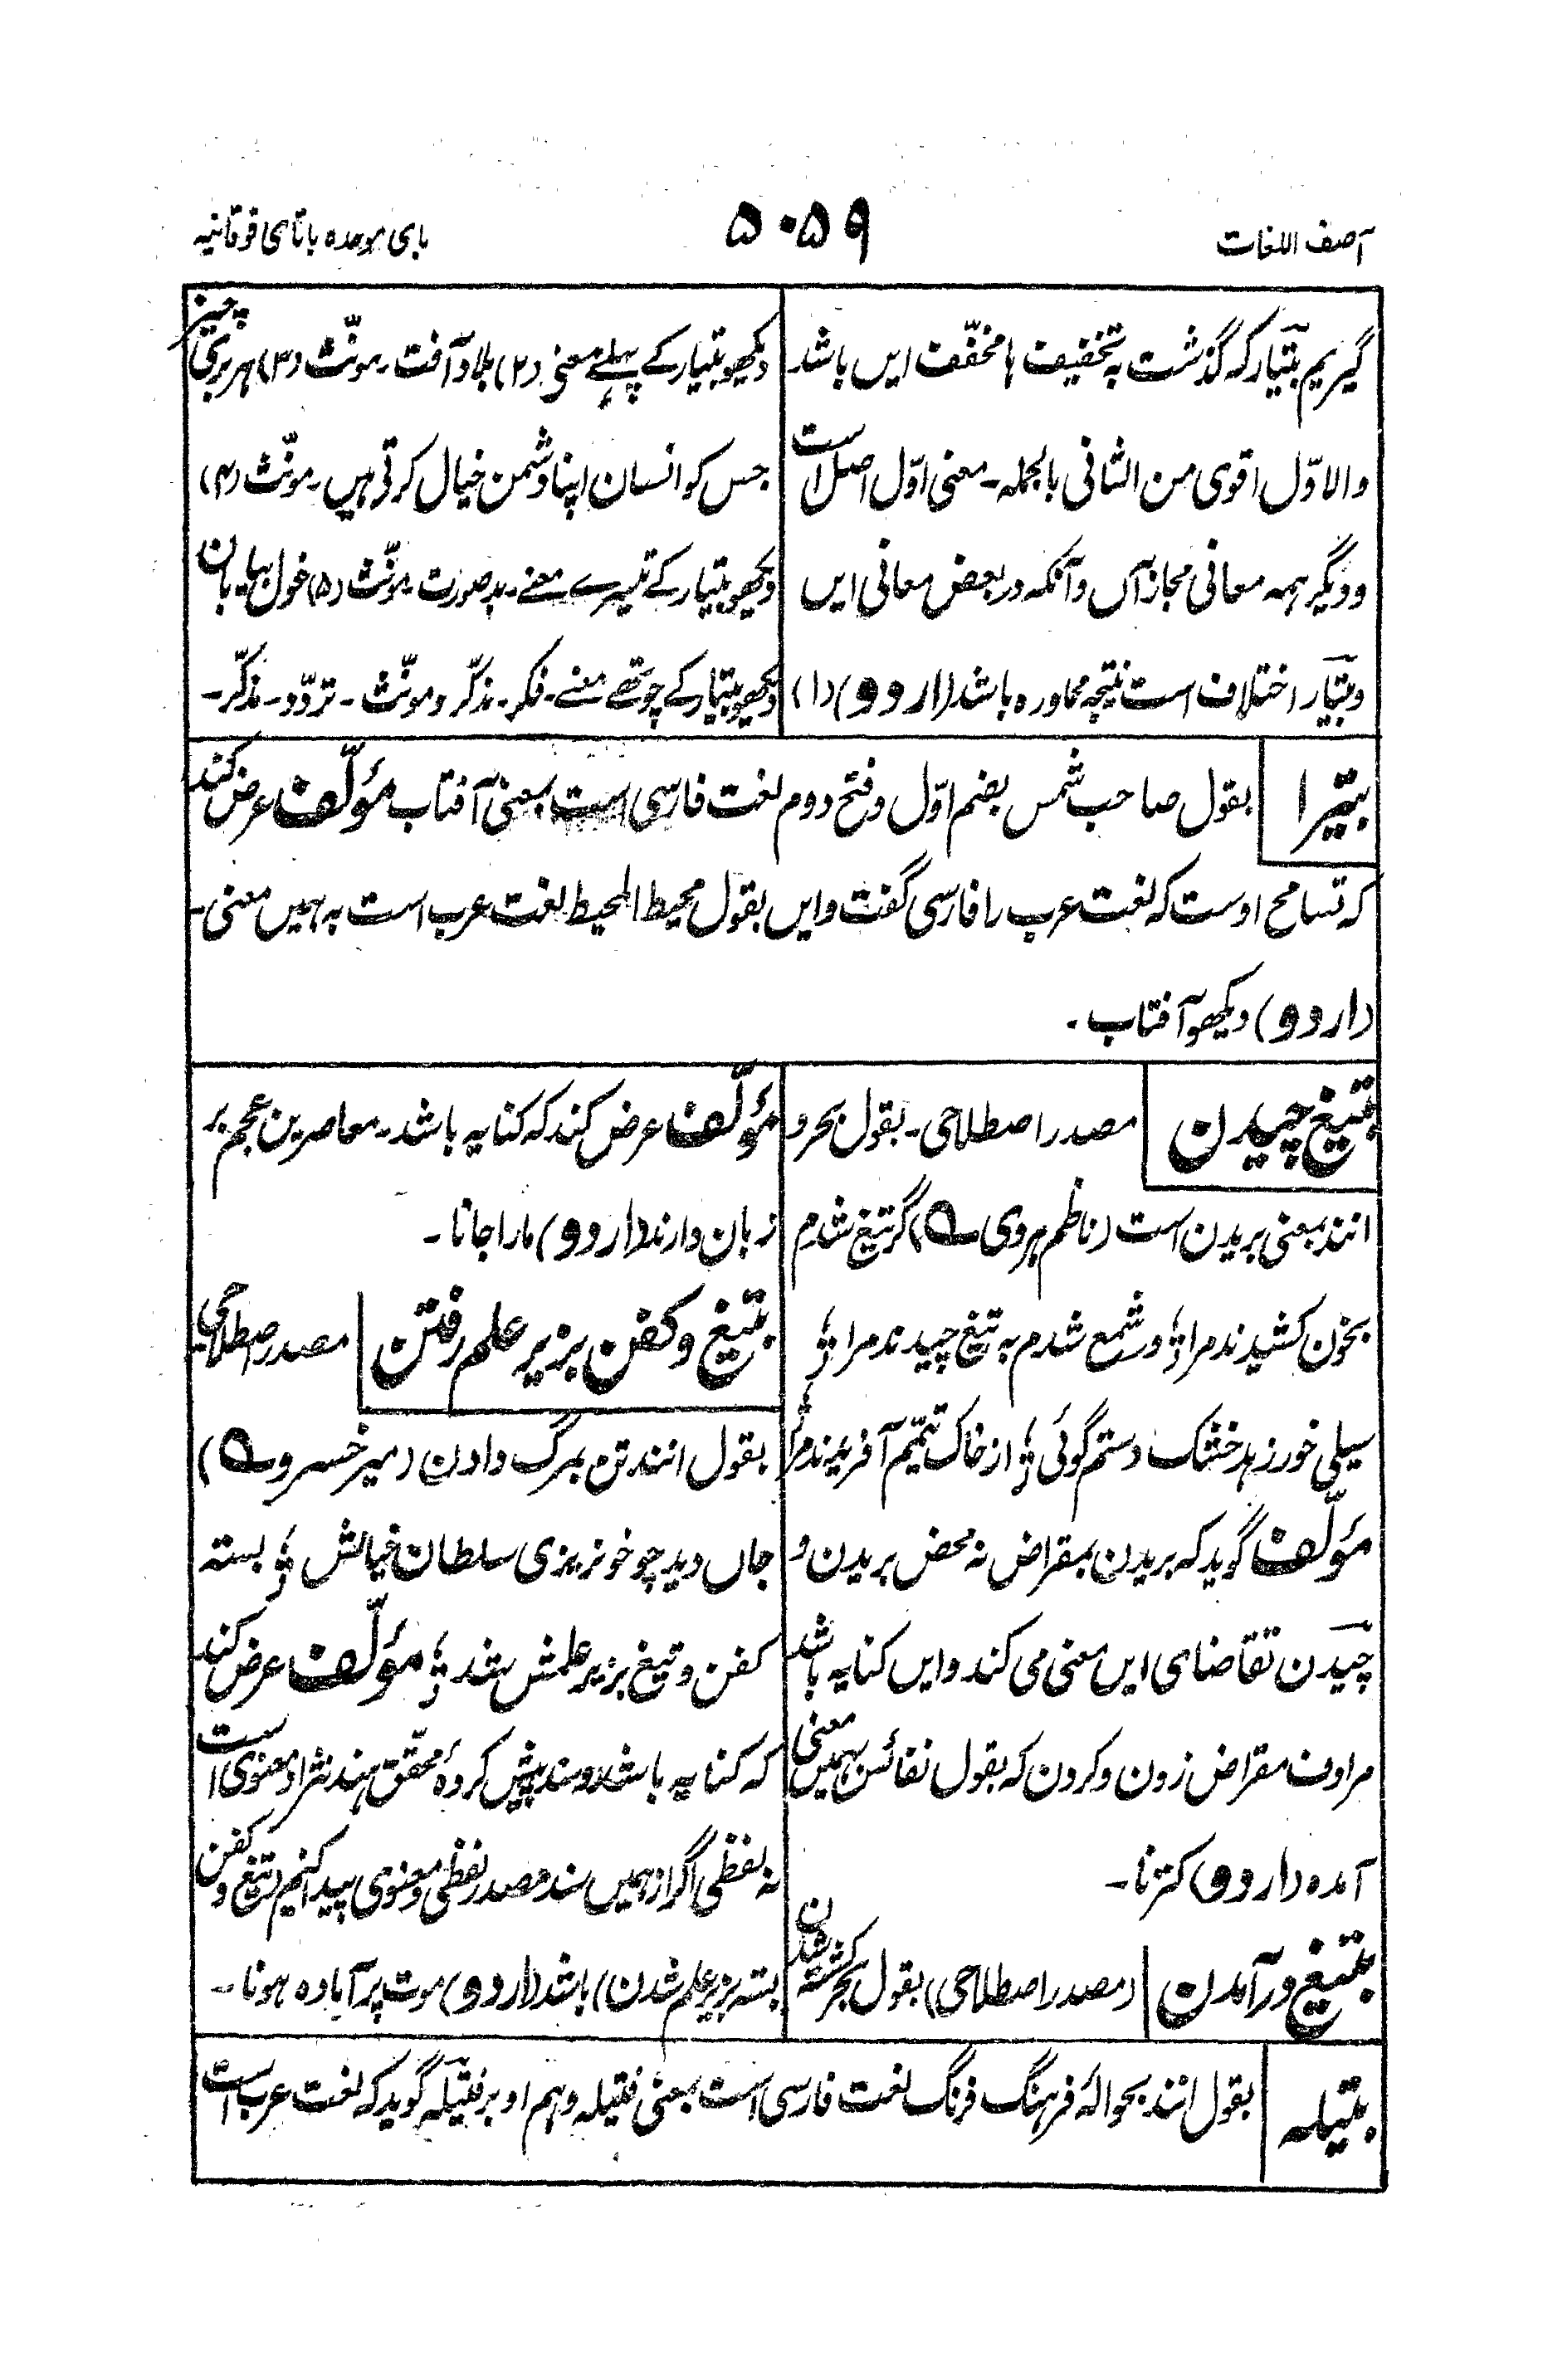 آصف اللغات
۵۰۵۹
بای موحده باتای فوقانیه
گیریم بتیار که گذشت به تخفیف ها مخفّف ایں باشد
والاوّل اقوی من الثانی بالجمله۔ معنی اوّل اصل است
و دیگر ہمه معانی مجاز آں و آنکه در بعض معانی ایں
و بتیار اختلاف است نتیجه محاوره باشد (اردو) (۱)
دیکھو بتیار کے پہلے معنی (۲) بلا و آفت۔ مونّث (۳) ہر بری چیز
جس کو انسان اپنا دشمن خیال کرتی ہیں۔ مونّث (۴)
دیکھو بتیار کے تیسرے معنے۔ بدصورت۔ مونّث (۵) غول بیابان
دیکھو بتیار کے چوتھے معنے۔ فکر۔ مذکّر و مونّث۔ تردّد۔ مذکّر۔
بتیرا
بقول صاحب شمس بضم اوّل و فتح دوم لغت فارسی است بمعنی آفتاب مؤلّف عرض کند
که تسامح اوست که لغت عرب را فارسی گفت و ایں بقول محیط المحیط لغت عرب است به ہمیں معنی۔
(اردو) دیکھو آفتاب۔
بتیغ چیدن
مصدر اصطلاحی۔ بقول بحر و
انند بمعنی بریدن است (ناظم ہروی ؎) گر تیغ شدم
بخون کشیدند مرا ؛ ور شمع شدم به تیغ چیدند مرا ؛
سیلی خور زہد خشک دستم گوئی ؛ از خاک تیمّم آفریدند مرا ؛
مؤلّف گوید که بریدن بمقراض نه محض بریدن و
چیدن تقاضای ایں معنی می کند و ایں کنایه باشد
مرادف مقراض زدن و کردن که بقول نفائس بہمیں معنی
آمده (اردو) کترنا۔
بتیغ در آمدن
(مصدر اصطلاحی) بقول بحر کشته شدن
مؤلّف عرض کند که کنایه باشد۔ معاصرین عجم بر
زبان دارند (اردو) مارا جانا۔
بتیغ و کفن بزیر علم رفتن
مصدر اصطلاحی
بقول انند تن بمرگ دادن (میر خسرو ؎)
جاں دید چو خونریزی سلطان خیالش ؛ بسته
کفن و تیغ بزیر علمش شد ؛ مؤلّف عرض کند
که کنایه باشد و سند پیش کردهٔ محقّق ہند نژاد معنوی است
نه لفظی اگر از ہمیں سند مصدر لفظی و معنوی پیدا کنیم (تیغ و کفن
بسته بزیر علم شدن) باشد (اردو) موت پر آماده ہونا۔
بتیله
بقول انند بحوالهٔ فرہنگ فرنگ لغت فارسی است بمعنی فتیله و ہم او بر فتیله گوید که لغت عرب است